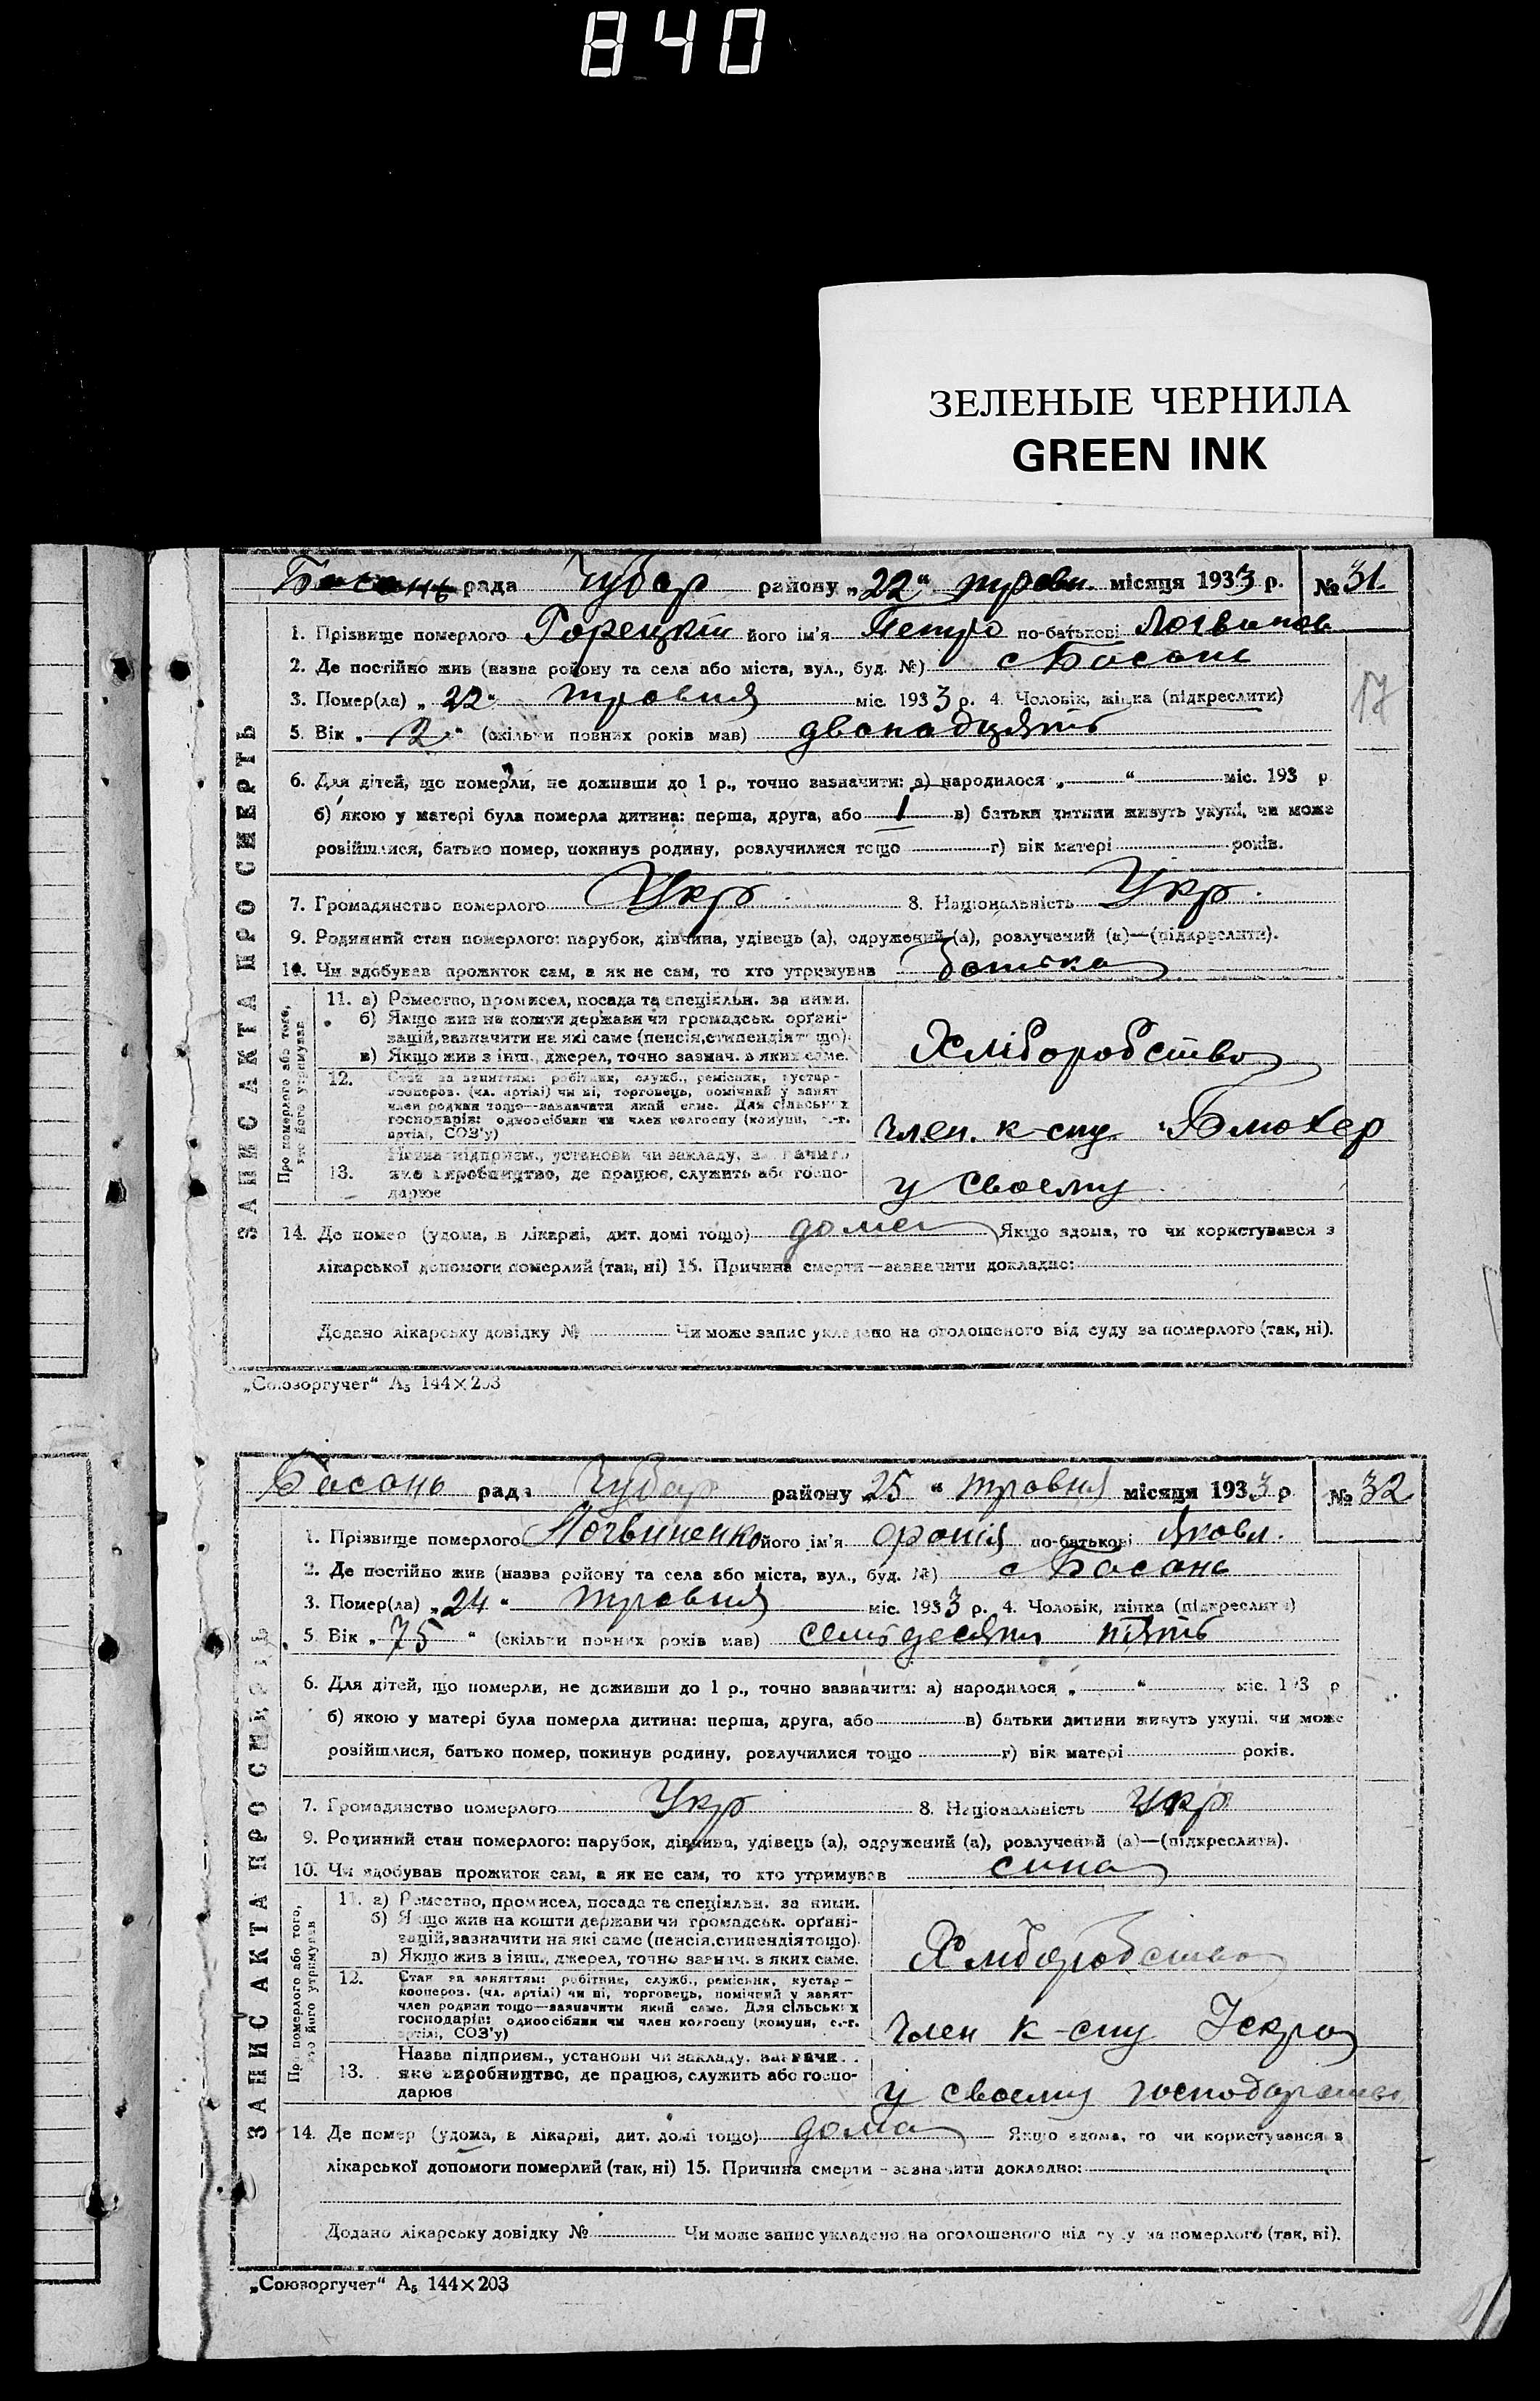 840
ЗЕЛЕНЫЕ ЧЕРНИЛА
GREEN INK
ЗАПИС АКТА ПРО СМЕРТЬ
Басань рада Чубар району „22“ травн. місяця 1933 р. № 31.
1. Прізвище померлого Горецкій його ім'я Петро по-батькові Логвинов
2. Де постійно жив (назва району та села або міста, вул., буд. №) с Басань
3. Помер(ла) „22“ травня міс. 1933 р. 4. Чоловік, жінка (підкреслити)
5. Вік „12“ (скільки повних років мав) дванадцять
6. Для дітей, що померли, не доживши до 1 р., точно зазначити: а) народилося „ “ міс. 193 р
б) якою у матері була померла дитина: перша, друга, або 1 в) батьки дитини живуть укупі, чи може
розійшлися, батько помер, покинув родину, розлучилися тощо г) вік матері років.
7. Громадянство померлого Укр 8. Національність Укр.
9. Родинний стан померлого: парубок, дівчина, удівець (а), одружений (а), розлучений (а)—(підкреслити).
10. Чи здобував прожиток сам, а як не сам, то хто утримував батька
Про померлого або того, хто його утримував
11. а) Ремество, промисел, посада та спеціяльн. за ними.
б) Якщо жив на кошти держави чи громадськ. органі-
зацій, зазначити на які саме (пенсія, стипендія тощо).
в) Якщо жив з інш., джерел, точно зазнач. з яких саме.
Хліборобство
12. Стан за заняттям: робітник, служб., ремісник, кустар-
кооперов. (чл. артілі) чи ні, торговець, помічний у занят
член родини тощо—зазначити який саме. Для сільських
господарів: одноосібник чи член колгоспу (комуни, с.-г.
артілі, СОЗ'у)
член. к-спу Блюхер
13. Назва підприєм., установи чи закладу, зазначити
яке виробництво, де працює, служить або госпо-
дарює
у своему
14. Де помер (удома, в лікарні, дит. домі тощо) дома Якщо вдома, то чи користувався з
лікарської допомоги померлий (так, ні) 15. Причина смерти—зазначити докладно:
Додано лікарську довідку № Чи може запис укладено на оголошеного від суду за померлого (так, ні).
17
„Союзоргучет“ А5 144×203
ЗАПИС АКТА ПРО СМЕРТЬ
Басань рада Чубар району 25 “ травня місяця 1933 р № 32
1. Прізвище померлого Логвиненко його ім'я оронія по-батькові Яковл.
2. Де постійно жив (назва району та села або міста, вул., буд. №) с Басань
3. Помер(ла) „24“ травня міс. 1933 р. 4. Чоловік, жінка (підкреслити)
5. Вік „75“ (скільки повних років мав) семьдесять пять
6. Для дітей, що померли, не доживши до 1 р., точно зазначити: а) народилося „ “ міс. 193 р
б) якою у матері була померла дитина: перша, друга, або в) батьки дитини живуть укупі, чи може
розійшлися, батько помер, покинув родину, розлучилися тощо г) вік матері років.
7. Громадянство померлого Укр 8. Національність Укр
9. Родинний стан померлого: парубок, дівчина, удівець (а), одружений (а), розлучений (а)—(підкреслити).
10. Чи здобував прожиток сам, а як не сам, то хто утримував сина
Про померлого або того, хто його утримував
11. а) Ремество, промисел, посада та спеціяльн. за ними.
б) Якщо жив на кошти держави чи громадськ. органі-
зацій, зазначити на які саме (пенсія, стипендія тощо).
в) Якщо жив з інш., джерел, точно зазнач. з яких саме.
Хліборобство
12. Стан за заняттям: робітник, служб., ремісник, кустар—
кооперов. (чл. артілі) чи ні, торговець, помічний у занят
член родини тощо—зазначити який саме. Для сільських
господарів: одноосібник чи член колгоспу (комуни, с.-г.
артілі, СОЗ'у)
член к-спу Іскра
13. Назва підприєм., установи чи закладу, зазначити
яке виробництво, де працює, служить або госпо-
дарює
у своему господарстві
14. Де помер (удома, в лікарні, дит. домі тощо) дома Якщо вдома, то чи користувався з
лікарської допомоги померлий (так, ні) 15. Причина смерти—зазначити докладно:
Додано лікарську довідку № Чи може запис укладено на оголошеного від суду за померлого (так, ні).
„Союзоргучет“ А5 144×203